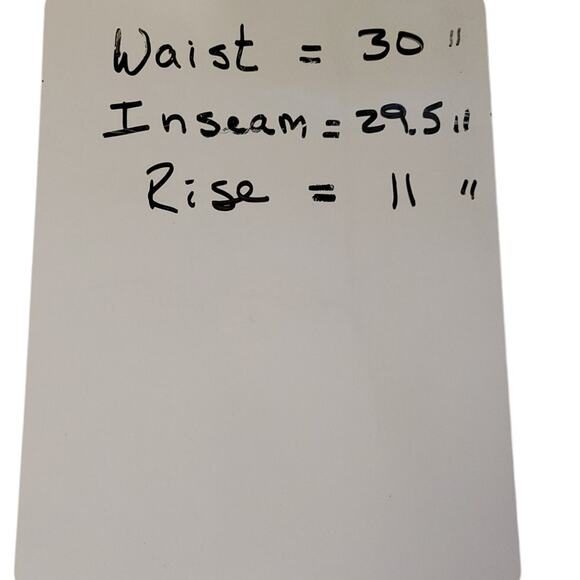 Waist = 30 "
Inseam = 29.5 "
Rise = 11 "